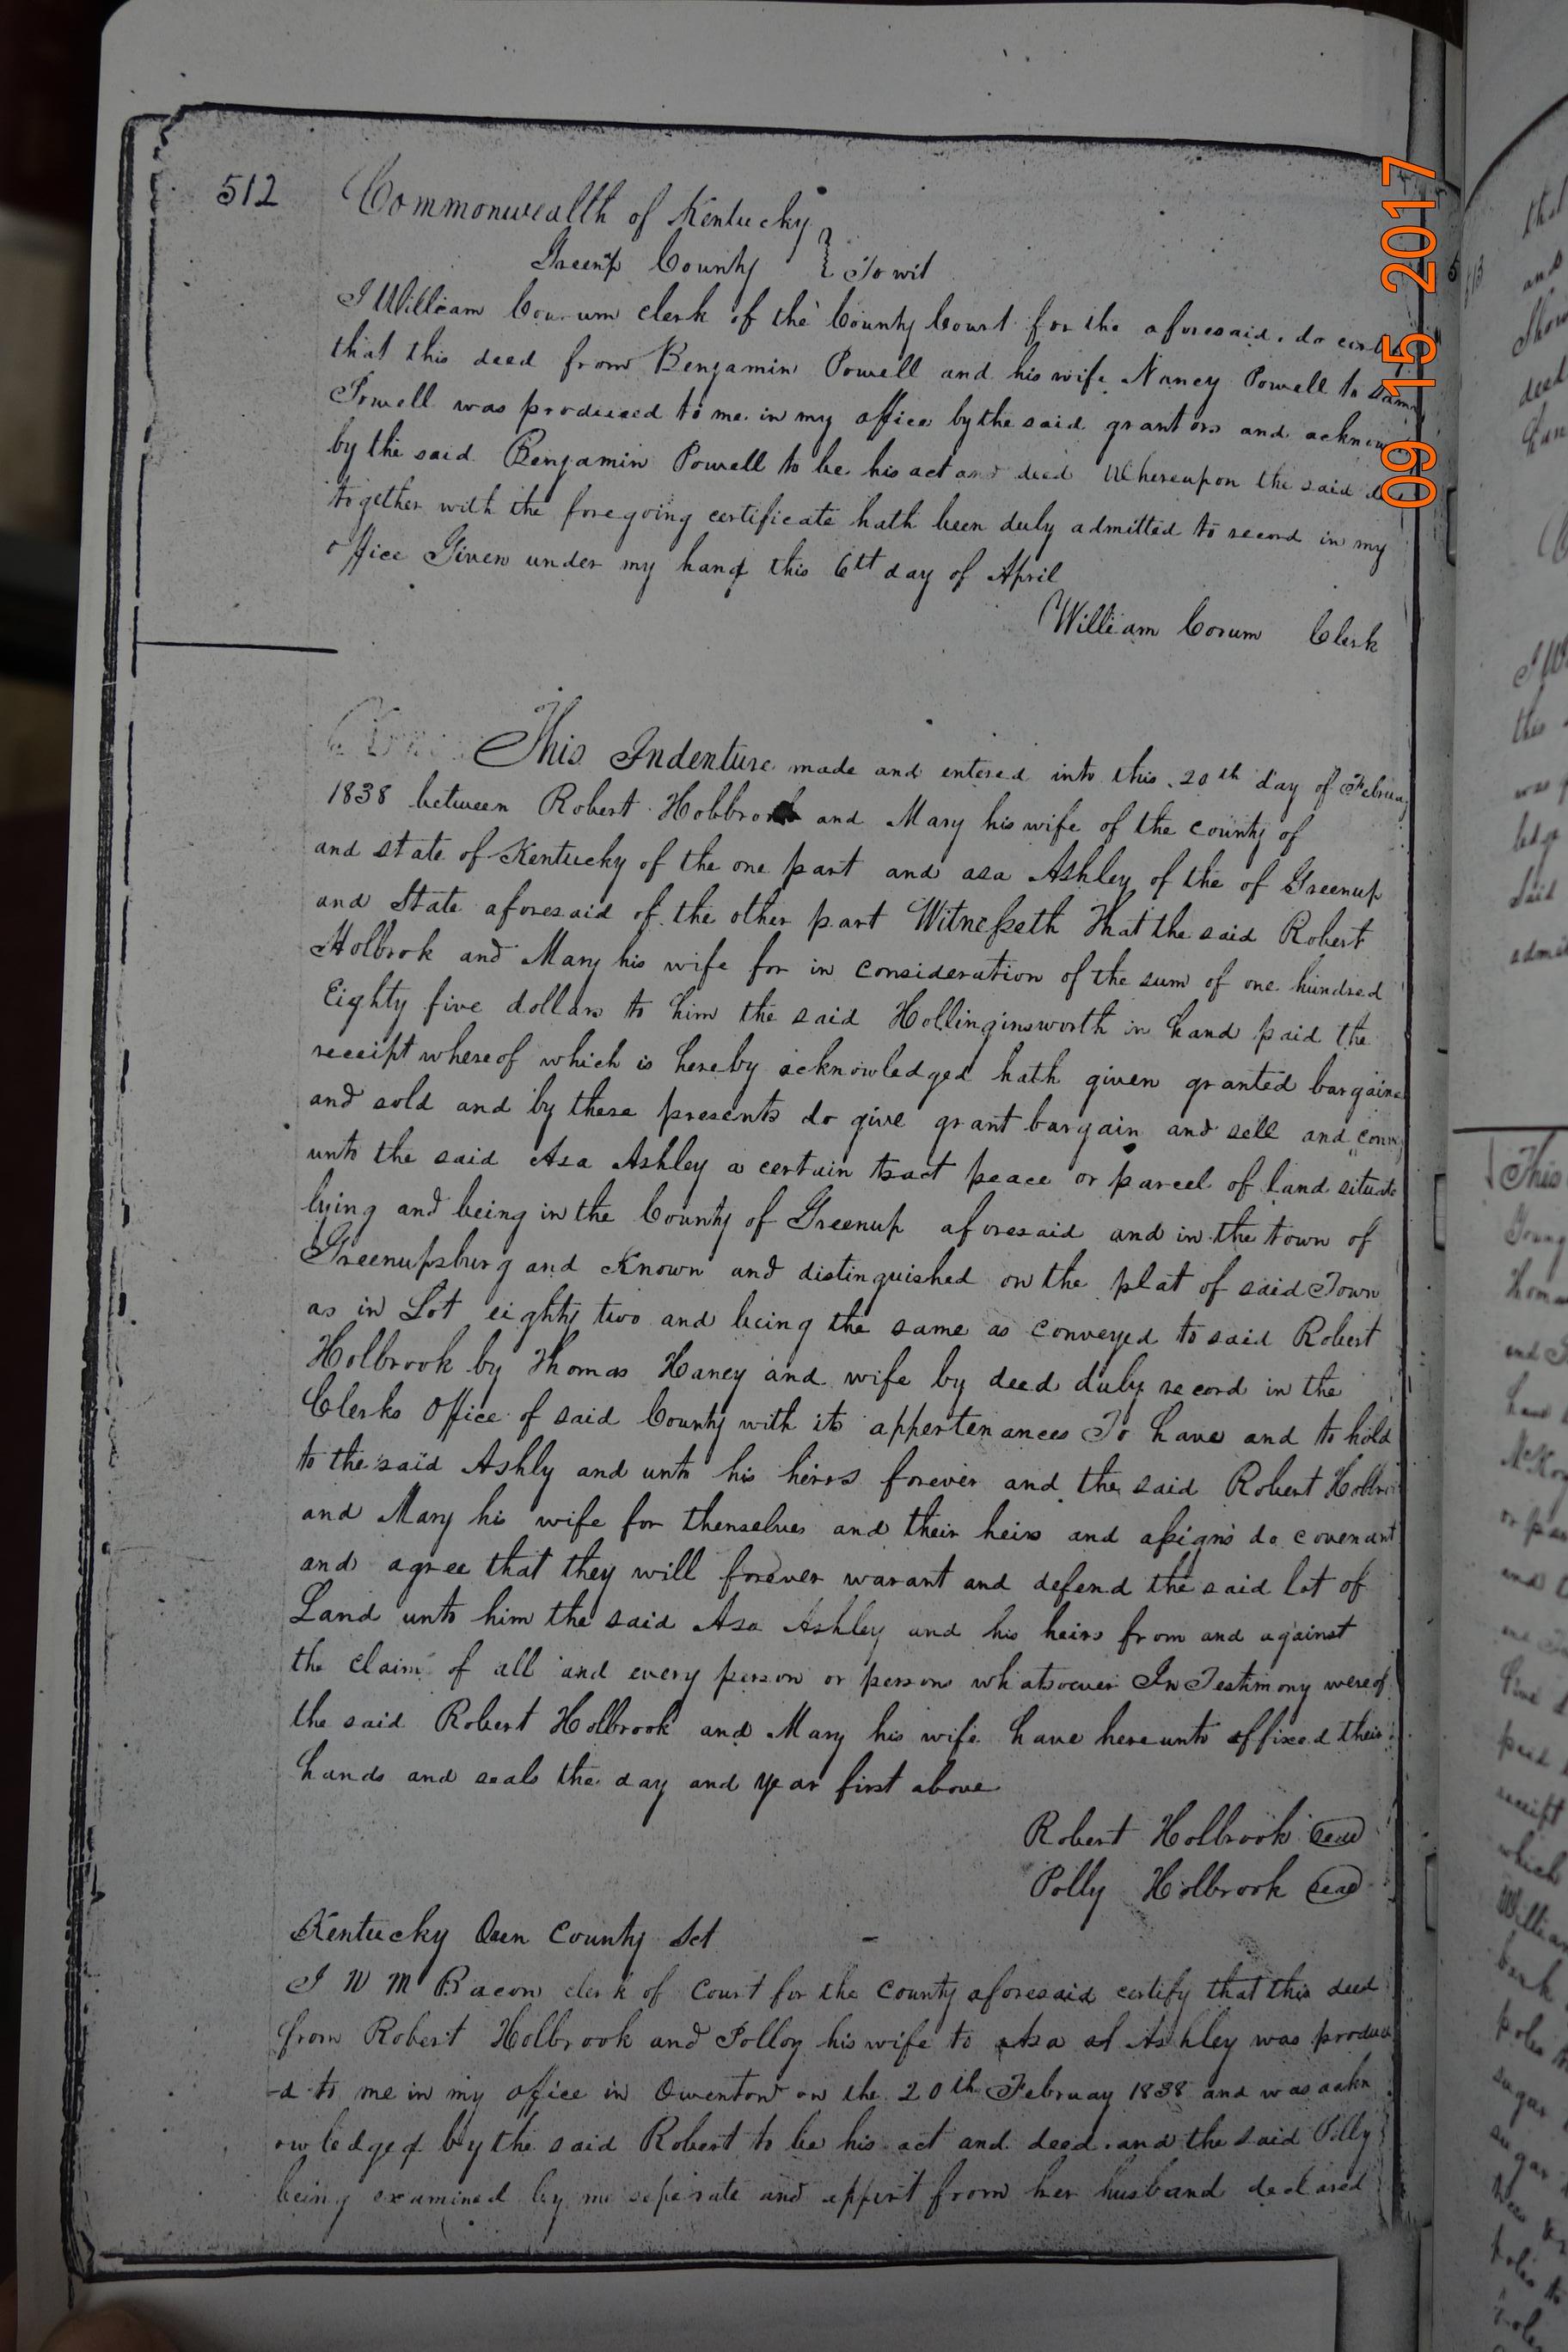 512
Commonwealth of Kentucky
Greenp County } To wit
I William Courum clerk of the County Court for the aforesaid. do
that this deed from Benjamin Powell and his wife Nancy Powell to
Powell was produced to me in my office by the said grantors and
by the said Benjamin Powell to be his act and deed Whereupon the said
together with the foregoing certificate hath been duly admitted to record in my
office Given under my hand this 6th day of April
William Corum Clerk
This Indenture made and entered into this 20th day of February
1838 between Robert and Mary his wife of the county of
and state of Kentucky of the one part and asa Ashley of the of Greenup
and State aforesaid of the other part Witnesseth That the said Robert
Holbrok and Mary his wife for in consideration of the sum of one hundred
Eighty five dollars to him the said Hollinginsworth in hand paid the
receipt whereof which is hereby acknowledged hath given granted bargaine
and sold and by these presents do give grant bargain and sell and
unto the said Asa Ashley a certain tract peace or parcel of land situate
lying and being in the County of Greenup aforesaid and in the town of
Greenupsburg and Known and distinguished on the plat of said Town
as in Lot eighty two and being the same as conveyed to said Robert
Holbrook by Thomas Haney and wife by deed duly record in the
Clerks Office of said County with its appertenances To have and to hold
to the said Ashly and unto his heirs forever and the said Robert
and Mary his wife for themselves and their heirs and assigns do covenant
and agree that they will forever warant and defend the said lot of
Land unto him the said Asa Ashley and his heirs from and against
the claim of all and every person or persons whatsoever In Testimony wereof
the said Robert Holbrook and Mary his wife have hereunto affixed their
hands and seals the day and year first above
Robert Holbrook Seal
Polly Holbrook Seal
Kentucky Owen County Sct
I W M Bacon clerk of Court for the County aforesaid certify that this deed
from Robert Holbrook and Polloy his wife to Asa at Ashley was produce
-d to me in my office in Owenton on the 20th February 1838 and was ackn
owledged by the said Robert to be his act and deed. and the said Polly
being examined by me seperate and appart from her husband declared
09 15 2017